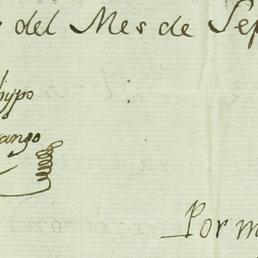 del Mes de Sep
hypo
ango
Por m